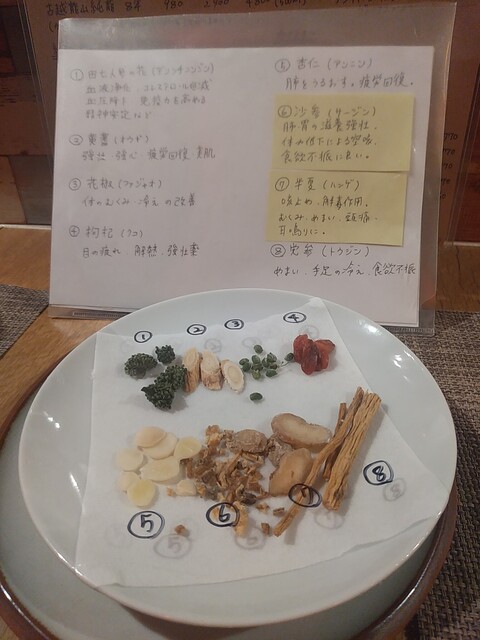 古越龍山純龍
① 田七人参の花 (デンシチニンジン)
血液浄化 コレステロール低減
血圧降下 免疫力を高める
精神安定など
② 黄耆 (オウギ)
強壮 強心 疲労回復 美肌
③ 花椒 (ファジャオ)
体のむくみ、冷えの改善
④ 枸杞 (クコ)
目の疲れ、解熱、強壮薬
⑤ 杏仁 (アンニン)
肺をうるおす。疲労回復。
⑥ 沙参 (サージン)
肺、胃の滋養強壮、
体力低下による空咳、
食欲不振に良い。
⑦ 半夏 (ハンゲ)
咳止め、解毒作用。
むくみ、めまい、頭痛、
耳鳴りに。
⑧ 党参 (トウジン)
めまい、手足の冷え、食欲不振
① ② ③ ④
⑤ ⑥ ⑦ ⑧